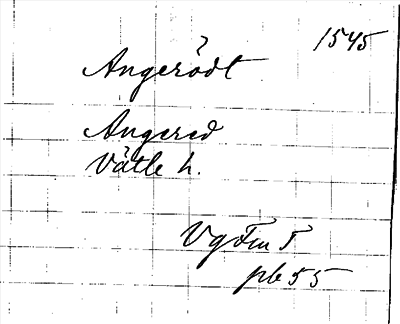 1545
Angerödt
Angered
Vättle h.
Vg Fm 5
pb 55